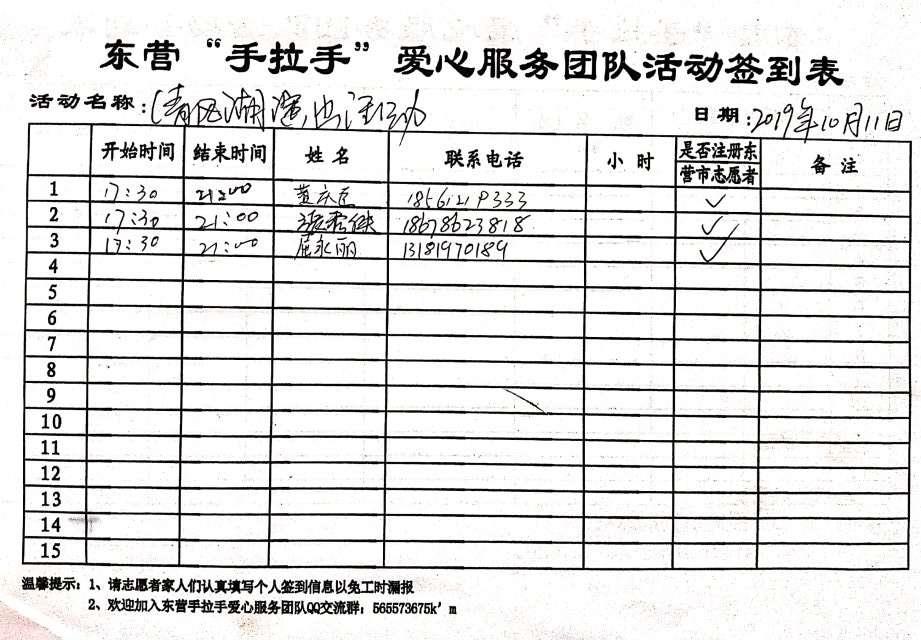 东营“手拉手”爱心服务团队活动签到表
活动名称：(清风湖) 日期：2019年10月11日
开始时间 结束时间 姓名 联系电话 小时 是否注册东营市志愿者 备注
1 17:30 21:00 18561219333 ✓
2 17:30 21:00 18678623818 ✓
3 17:30 21:00 屈永丽 13181970189 ✓
4
5
6
7
8
9
10
11
12
13
14
15
温馨提示：1、请志愿者家人们认真填写个人签到信息以免工时漏报
2、欢迎加入东营手拉手爱心服务团队QQ交流群：565573675k'm